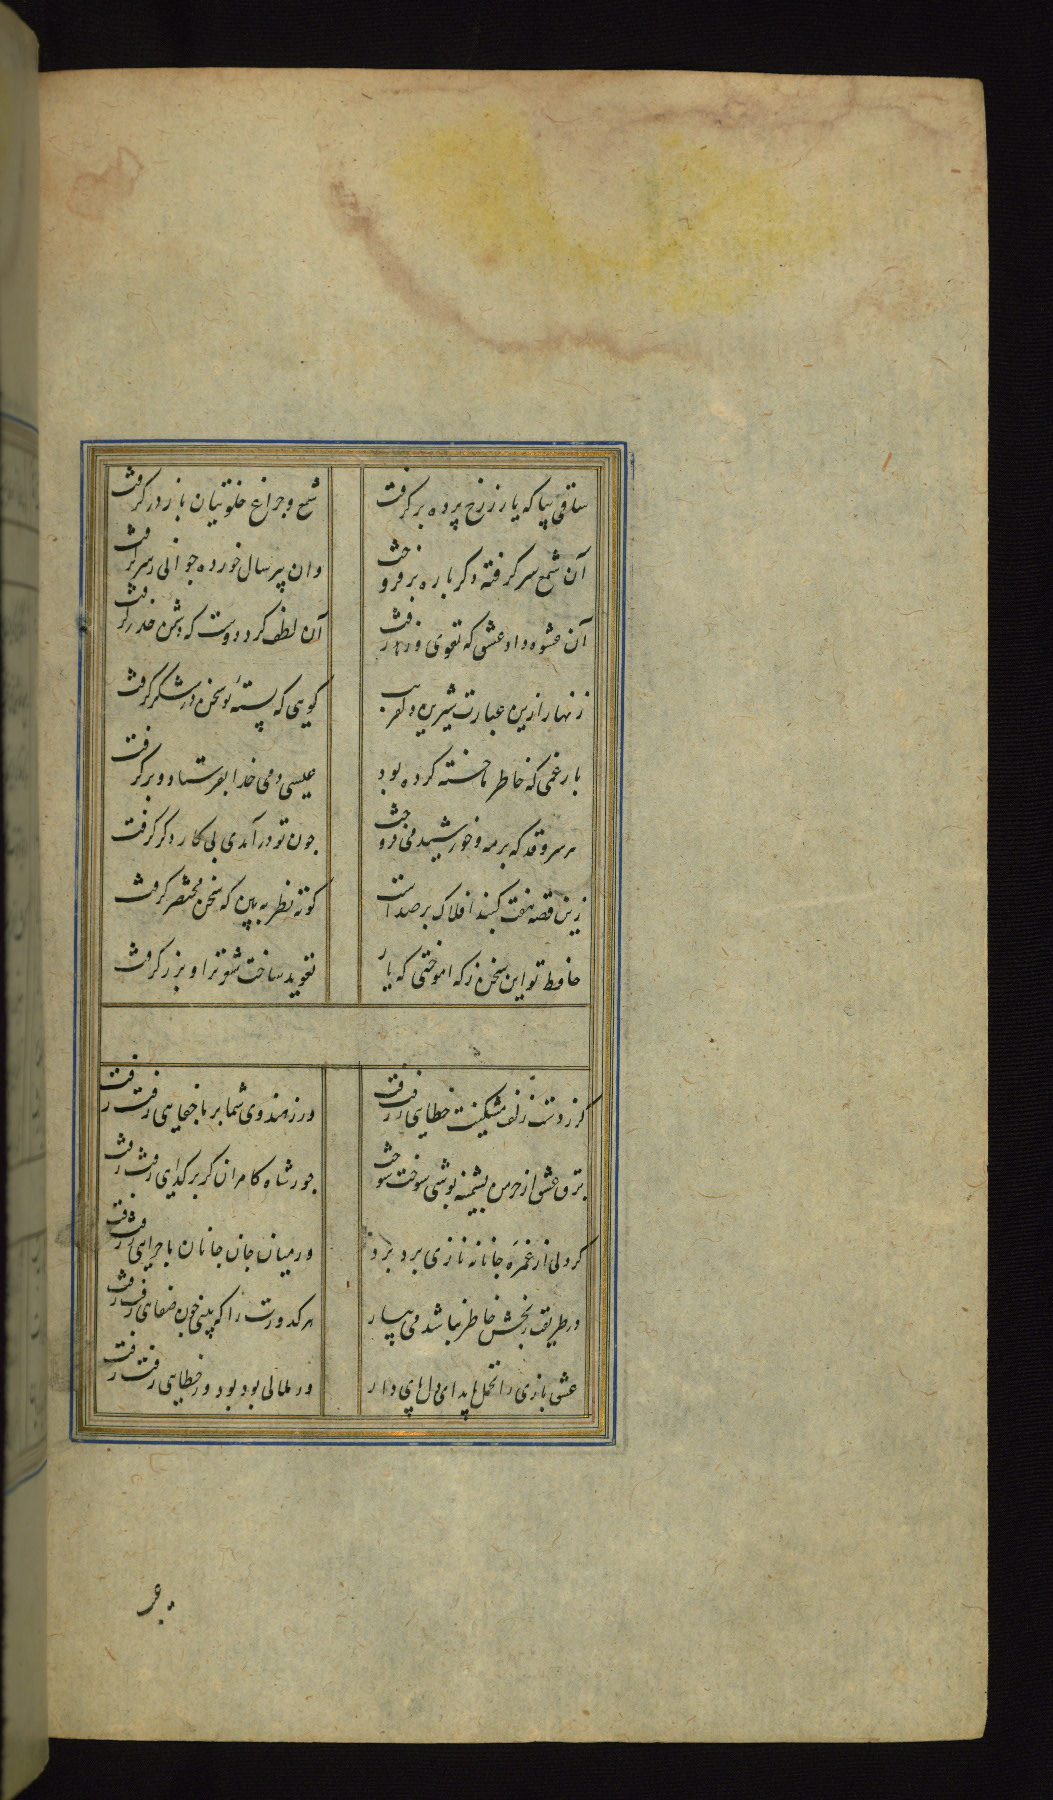 ساقی بیا که یار ز رخ پرده برگرفت
شمع و چراغ خلوتیان باز در گرفت
آن شمع سر گرفته دگرباره بر فروخت
وان پیر سال خورده جوانی ز سر گرفت
آن عشوه داد عشق که تقوی ز ره رفت
آن لطف کرد دوست که دشمن حذر گرفت
زنهار ازین عبارت شیرین دلفریب
گویی که پسته تو سخن در شکر گرفت
بار غمی که خاطر ما خسته کرده بود
عیسی دمی خدا بفرستاد و برگرفت
هر سرو قد که بر مه و خورشید می فروخت
چون تو درآمدی پی کار دگر گرفت
زین قصه هفت گنبد افلاک پر صداست
کوته نظر به بین که سخن مختصر گرفت
حافظ تو این سخن ز که آموختی که یار
تعوید ساخت شعر ترا و بزر گرفت
گر ز دست زلف مشکینت خطایی رفت رفت
ور ز هندوی شما بر ما جفایی رفت رفت
برق عشق از خرمن پشمینه پوشی سوخت سوخت
جور شاه کامران گر بر گدایی رفت رفت
گر دلی از غمزهٔ جانانه نازی برد برد
ور میان جان جانان ماجرایی رفت رفت
در طریقت رنجش خاطر نباشد می بیار
هر کدورت را که بینی چون صفایی رفت رفت
عشق بازی را تحمل باید ای دل پای دار
ور ملالی بود بود ور خطایی رفت رفت